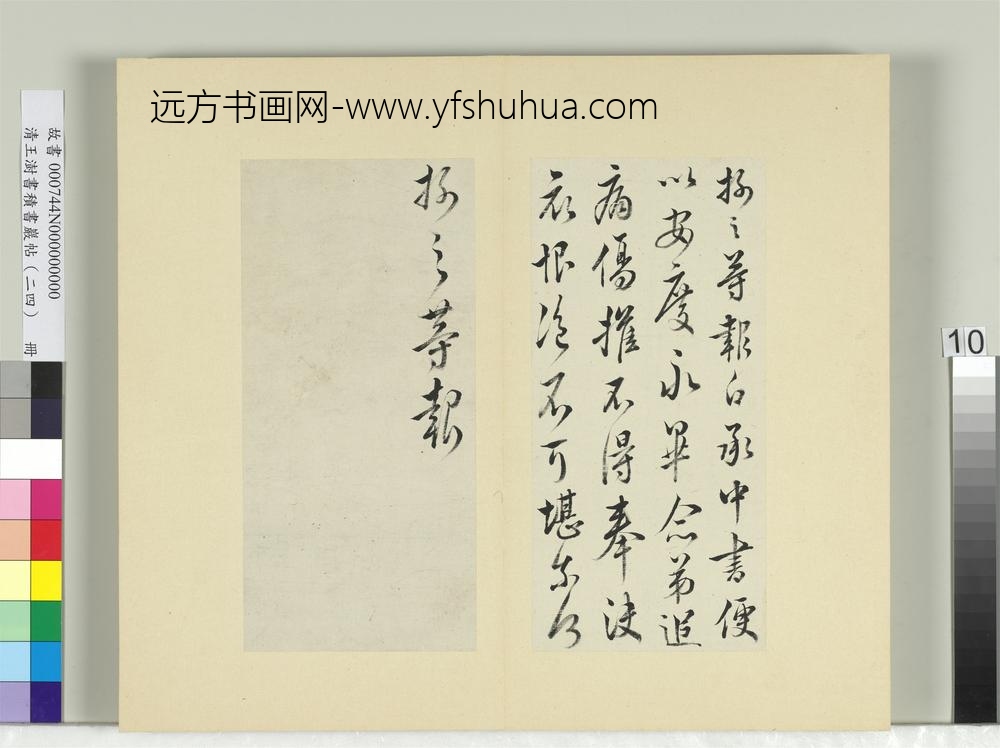 远方书画网-www.yfshuhua.com
故書 000744N000000000
清王澍書積書巖帖(二四) 冊
10
操之等報白承中書便
以安度永畢念弟追
痛傷摧不得奉訣
哀恨深不可堪奈何
操之等報